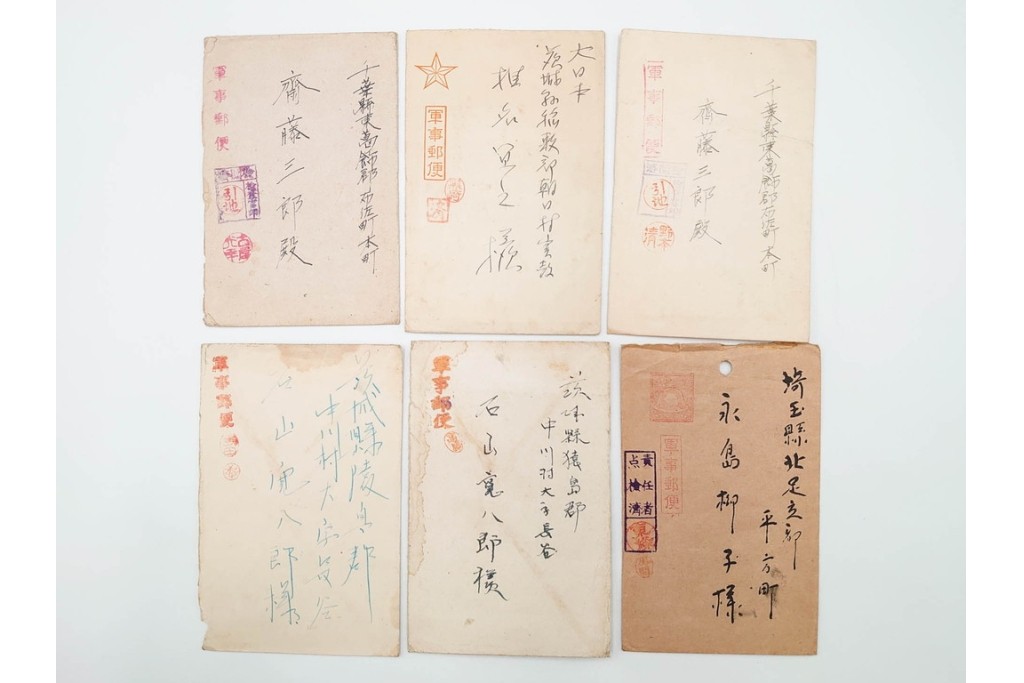 千葉縣東葛飾郡
本町
齋藤三郎殿
軍事郵便
引地
大日本
茨城縣稲敷郡朝日村実穀
様
軍事郵便
千葉縣東葛飾郡
本町
齋藤三郎殿
軍事郵便
引地
茨城縣猿島郡
中川村大字長谷
石山寛八郎様
軍事郵便
茨城縣猿島郡
中川村大字長谷
石山寛八郎様
軍事郵便
埼玉縣北足立郡
平方町
永島柳子様
軍事郵便
責任者
点検済